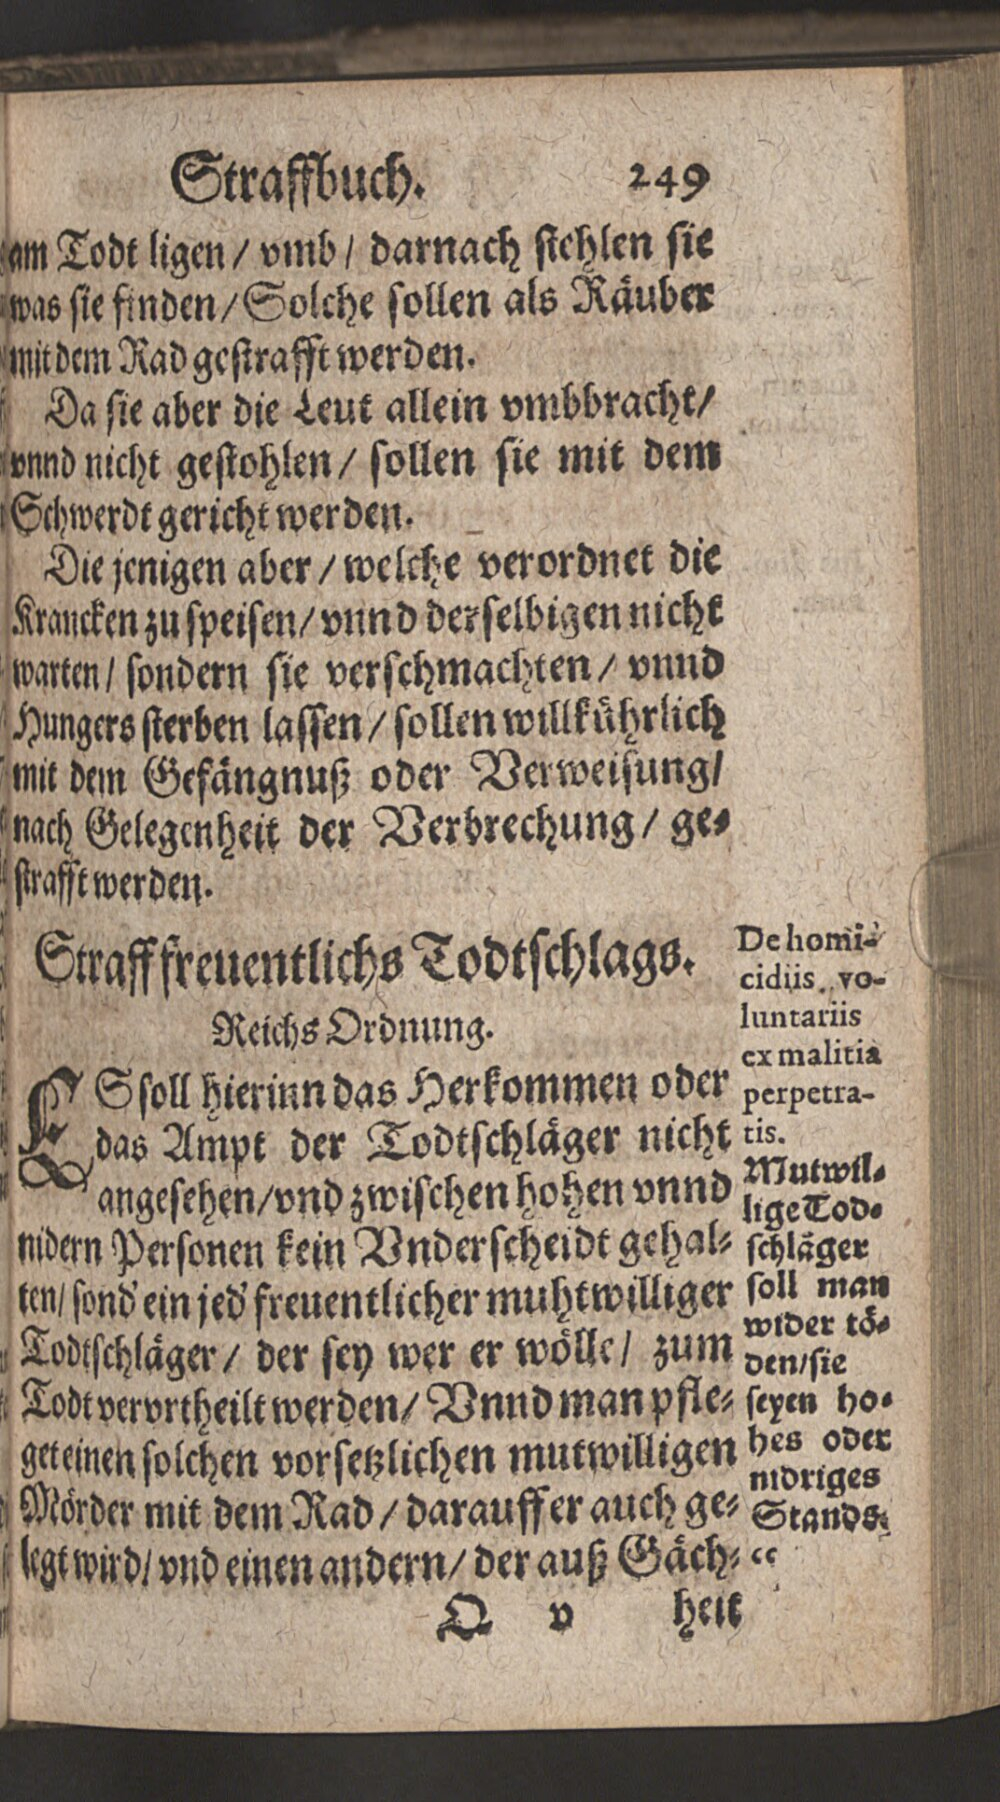 Straffbuch. 249
am Todt ligen / vmb / darnach stehlen sie
was sie finden / Solche sollen als Räuber
mit dem Rad gestrafft werden.
Da sie aber die Leut allein vmbbracht /
vnnd nicht gestohlen / sollen sie mit dem
Schwerdt gericht werden.
Die jenigen aber / welche verordnet die
Krancken zu speisen / vnnd derselbigen nicht
warten / sondern sie verschmachten / vnnd
Hungers sterben lassen / sollen willkührlich
mit dem Gefängnuß oder Verweisung /
nach Gelegenheit der Verbrechung / ge-
strafft werden.
Straff freuentlichs Todtschlags.
Reichs Ordnung.
ES soll hierinn das Herkommen oder
das Ampt der Todtschläger nicht
angesehen / vnd zwischen hohen vnnd
nidern Personen kein Vnderscheidt gehal-
ten / sond' ein jed' freuentlicher muhtwilliger
Todtschläger / der sey wer er wölle / zum
Todt vervrtheilt werden / Vnnd man pfle-
get einen solchen vorsetzlichen mutwilligen
Mörder mit dem Rad / darauff er auch ge-
legt wird / vnd einen andern / der auß Gäch-
Q v heit
De homi-
cidiis vo-
luntariis
ex malitia
perpetra-
tis.
Mutwil-
lige Tod-
schläger
soll man
wider tö-
den / sie
seyen ho-
hes oder
nidriges
Stands.
“